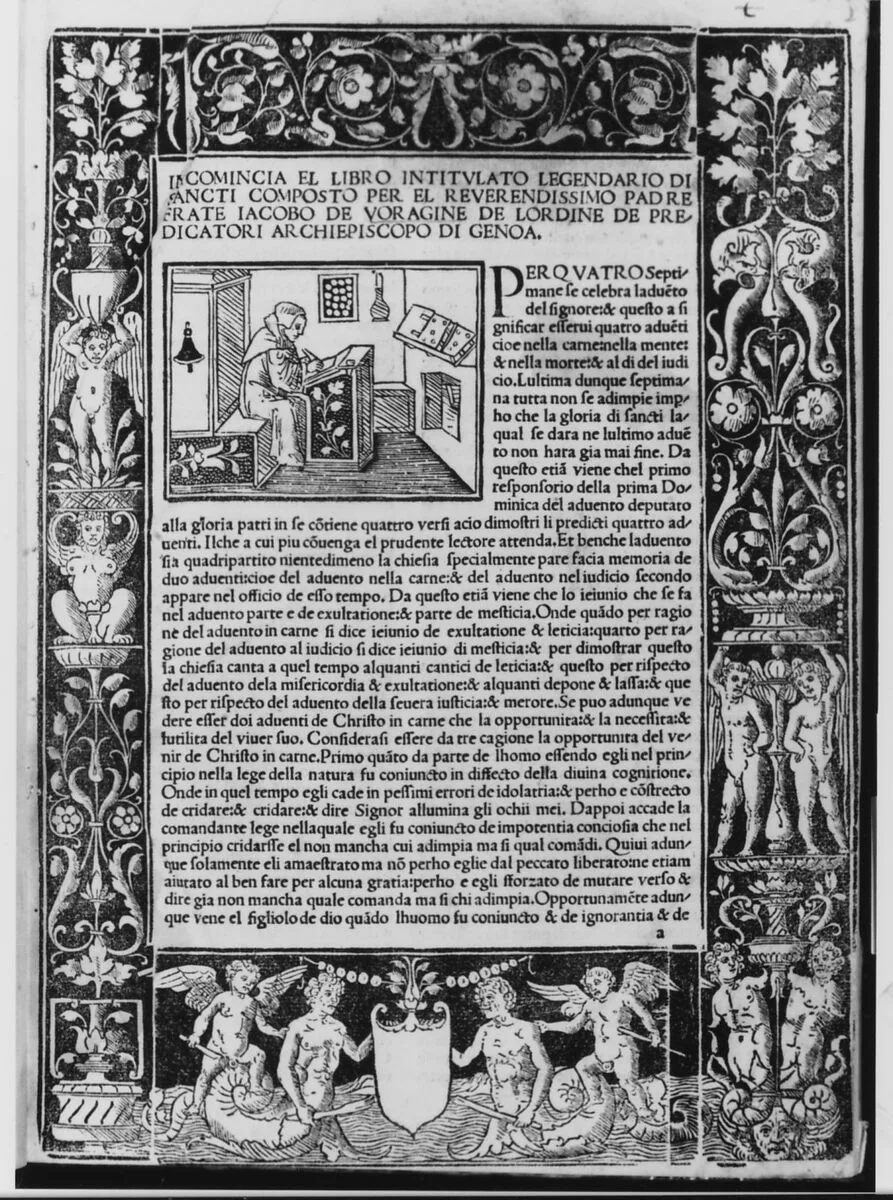 t
INCOMINCIA EL LIBRO INTITVLATO LEGENDARIO DI
SANCTI COMPOSTO PER EL REVERENDISSIMO PADRE
FRATE IACOBO DE VORAGINE DE LORDINE DE PRE/
DICATORI ARCHIEPISCOPO DI GENOA.
PER QVATRO Septi/
mane se celebra laduẽto
del signore:& questo a si
gnificar esserui quatro aduẽti
cioe nella carne:nella mente:
& nella morte:& al di del iudi
cio.Lultima dunque septima/
na tutta non se adimpie imp/
ho che la gloria di sancti la/
qual se dara ne lultimo aduẽ
to non hara gia mai fine. Da
questo etiã viene chel primo
responsorio della prima Do/
minica del aduento deputato
alla gloria patri in se cõtiene quattro versi acio dimostri li predicti quattro ad/
uenti. Ilche a cui piu cõuenga el prudente lectore attenda.Et benche laduento
sia quadripartito nientedimeno la chiesia specialmente pare facia memoria de
duo aduenti:cioe del aduento nella carne:& del aduento nel iudicio secondo
appare nel officio de esso tempo. Da questo etiã viene che lo ieiunio che se fa
nel aduento parte e de exultatione:& parte de mesticia.Onde quãdo per ragio
ne del aduento in carne si dice ieiunio de exultatione & leticia:quarto per ra/
gione del aduento al iudicio si dice ieiunio di mesticia:& per dimostrar questo
la chiesia canta a quel tempo alquanti cantici de leticia:& questo per rispecto
del aduento dela misericordia & exultatione:& alquanti depone & lassa:& que
sto per rispecto del aduento della seuera iusticia:& merore.Se puo adunque ve
dere esser doi aduenti de Christo in carne che la opportunita:& la necessita:&
lutilita del viuer suo. Considerasi essere da tre cagione la opportunita del ve/
nir de Christo in carne.Primo quãto da parte de lhomo essendo egli nel prin/
cipio nella lege della natura fu coniuncto in diffecto della diuina cognitione.
Onde in quel tempo egli cade in pessimi errori de idolatria:& perho e cõstrecto
de cridare:& cridare:& dire Signor allumina gli ochii mei. Dappoi accade la
comandante lege nellaquale egli fu coniuncto de impotentia conciosia che nel
principio cridarsse el non mancha cui adimpia ma si qual comãdi. Quiui adun/
que solamente eli amaestrato ma nõ perho eglie dal peccato liberato:ne etiam
aiutato al ben fare per alcuna gratia:perho e egli sforzato de mutare verso &
dire gia non mancha quale comanda ma si chi adimpia.Opportunamẽte adun/
que vene el figliolo de dio quãdo lhuomo fu coniuncto & de ignorantia & de
a